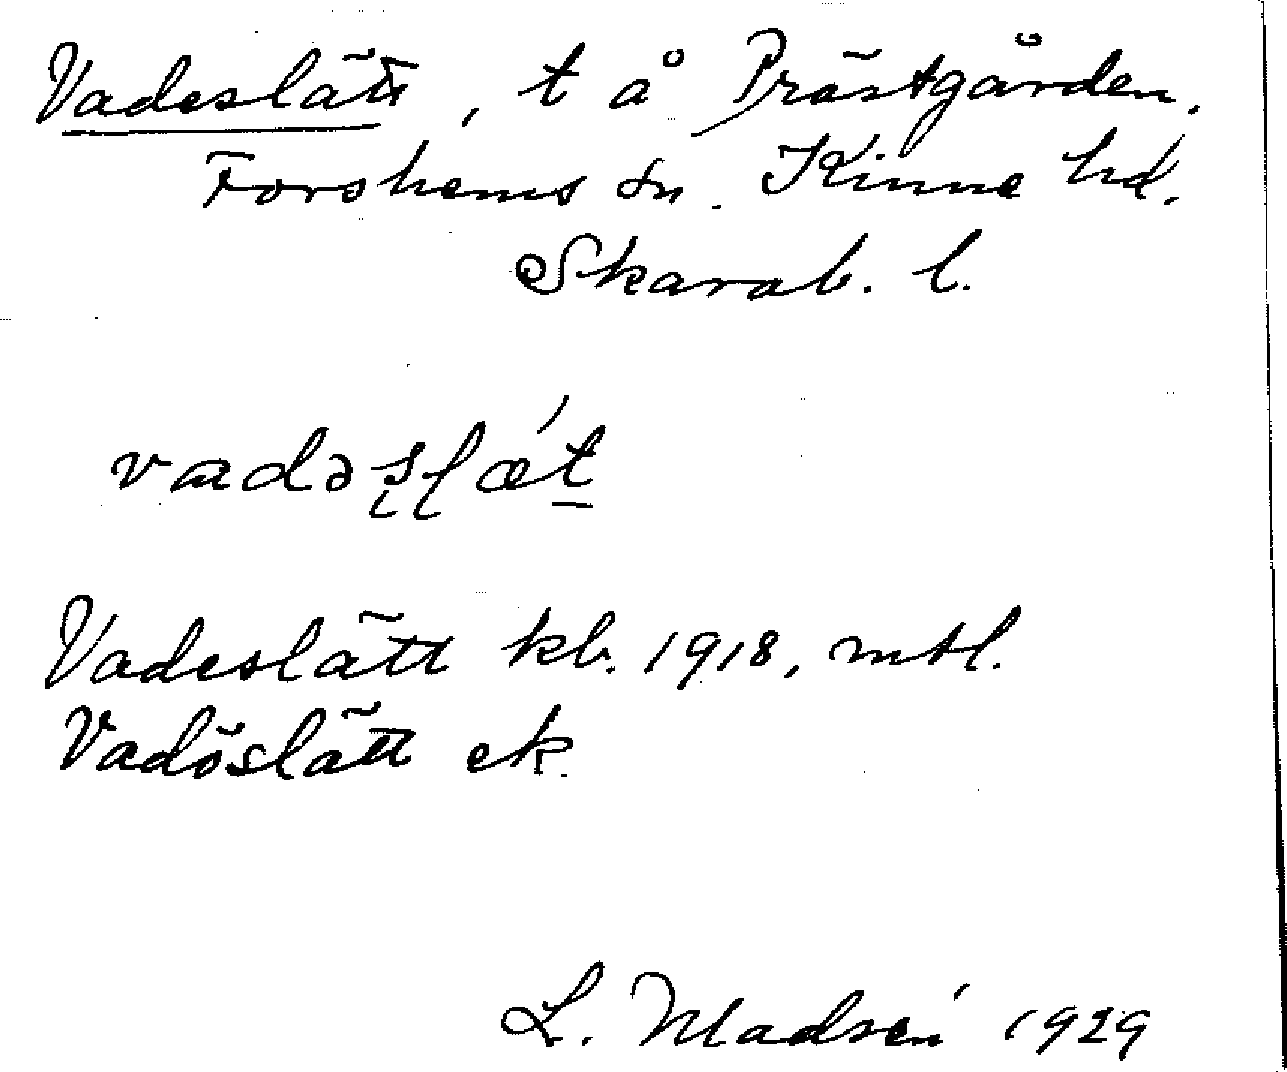 Vadeslätt, t å Prästgården.
Forshems sn. Kinne hd.
Skarab. l.
vadəslæ´t
Vadeslätt kb. 1918, mtl.
Vadöslätt ek.
L. Madsén 1929